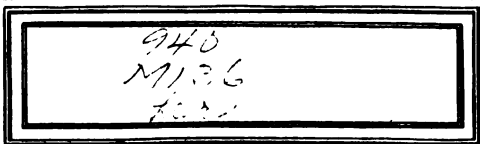 940
M136